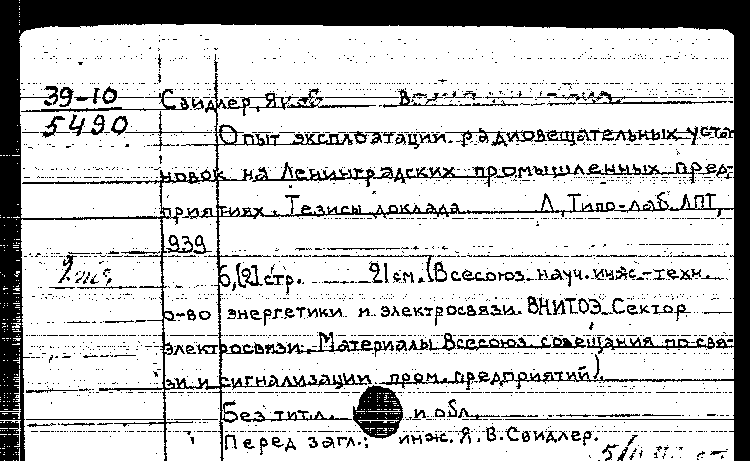 39-10
5490
Свидлер, Яков
Опыт эксплоатации радиовещательных уста-
новок на Ленинградских промышленных пред-
приятиях. Тезисы доклада Л., Типо-лаб. ЛПТ,
1939
6,[2] стр. 21 см. (Всесоюз. науч. инж.-техн.
о-во энергетики и электросвязи. ВНИТОЭ. Сектор
электросвязи. Материалы Всесоюз. совещания по свя-
зи и сигнализации пром. предприятий).
Без тит. л. и обл.
Перед загл.: инж. Я. В. Свидлер.